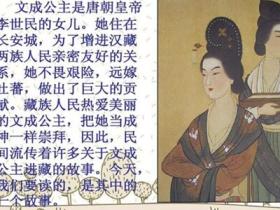 文成公主是唐朝皇帝
李世民的女儿。她住在
长安城，为了增进汉藏
两族人民亲密友好的关
系，她不畏艰险，远嫁
吐蕃，做出了巨大的贡
献。藏族人民热爱美丽
的文成公主，把她当成
神一样崇拜，因此，民
间流传着许多关于文成
公主进藏的故事。今天，
我们要读的，是其中的
一个故事。